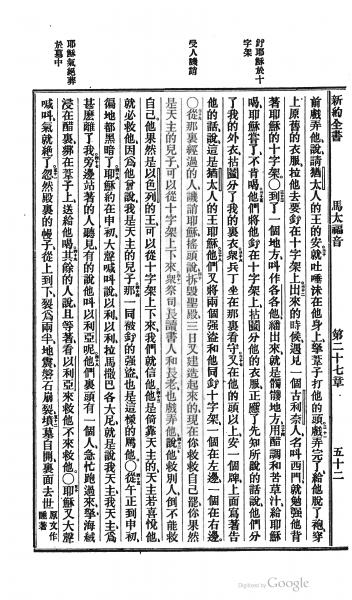 新約全書 馬太福音 第二十七章 五十二
前戲弄他說請猶太人的王的安就吐唾沫在他身上拏葦子打他的頭戲弄完了給他脫了袍穿
上原舊的衣服拉他去要釘在十字架上出來的時候遇見一個古利奈人名叫西門就勉強他背
釘耶穌於十
字架
著耶穌的十字架○到了一個地方叫作各各他繙出來就是髑髏地方用醋調和苦草汁給耶穌
喝耶穌嘗了不肯喝他們將他釘在十字架上拈鬮分他的衣服正應了先知所說的話說他們分
了我的外衣拈鬮分了我的裏衣衆兵丁坐在那裏看守又在他的頭以上安一個牌上面寫著告
他的話說這是猶太人的王耶穌他們又將兩個強盜和他同釘十字架一個在左邊一個在右邊
受人譏誚
○從那裏經過的人譏誚耶穌搖頭說拆毀聖殿三日又建造起來的現在你救救自己罷你果然
是天主的兒子可以從十字架上下來衆祭司長讀書人和長老也戲弄他說他救別人倒不能救
自己他果然是以色列的王可以從十字架上下來我們就信他他是倚靠天主的天主若喜悅他
就必救他因為他曾說我是天主的兒子那一同被釘的強盜也是這樣的罵他○從午正到申初
徧地都黑暗了耶穌約在申初大聲喊叫說以利以利拉馬撒巴各大尼就是說我天主我天主為
甚麽離了我旁邊站著的人聽見有的說他叫以利亞呢他們裏頭有一個人急忙跑過來拏海絨
耶穌氣絕葬
於墓中
浸在醋裏綁在葦子上送給他喝其餘的人說且等著看以利亞來救他不來救他○耶穌又大聲
喊叫氣就絕了忽然殿裏的幔子從上到下裂為兩半地震磐石崩裂墳墓自開裏面去世原文作睡著
Digitized by Google